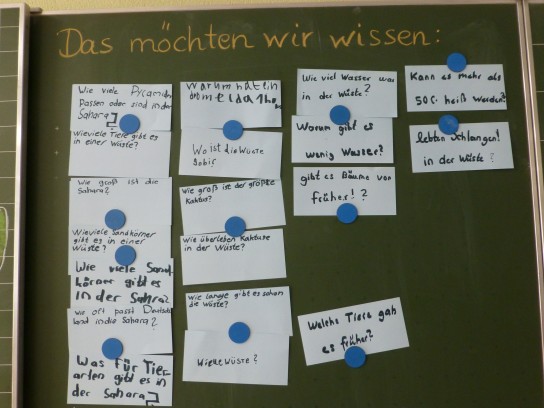 Das möchten wir wissen:
Wie viele Pyramiden
Passen oder sind in der
Sahara?
Wieviele Tiere gibt es
in einer Wüste?
Wie groß ist die
Sahara?
Wieviele Sandkörner
gibt es in einer
Wüste?
Wie viele Sand-
körner gibt es
in der Sahra?
wie oft passt Deutsch
land in die Sahara?
Was für Tier-
arten gibt es in
der Sahara?
Warum hat ein
Wo ist die Wüste
Gobi?
wie groß ist der größte
Kaktus?
Wie überleben Kaktuse
in der Wüste?
Wie lange gibt es schon
die Wüste?
Wiele Wüste?
Wie viel Wasser war
in der Wüste?
Warum gibt es
wenig Wasser?
gibt es Bäume von
früher!?
Welche Tiere gab
es früher?
Kann es mehr als
50C. heiß werden?
lebten Schlangen!
in der Wüste?